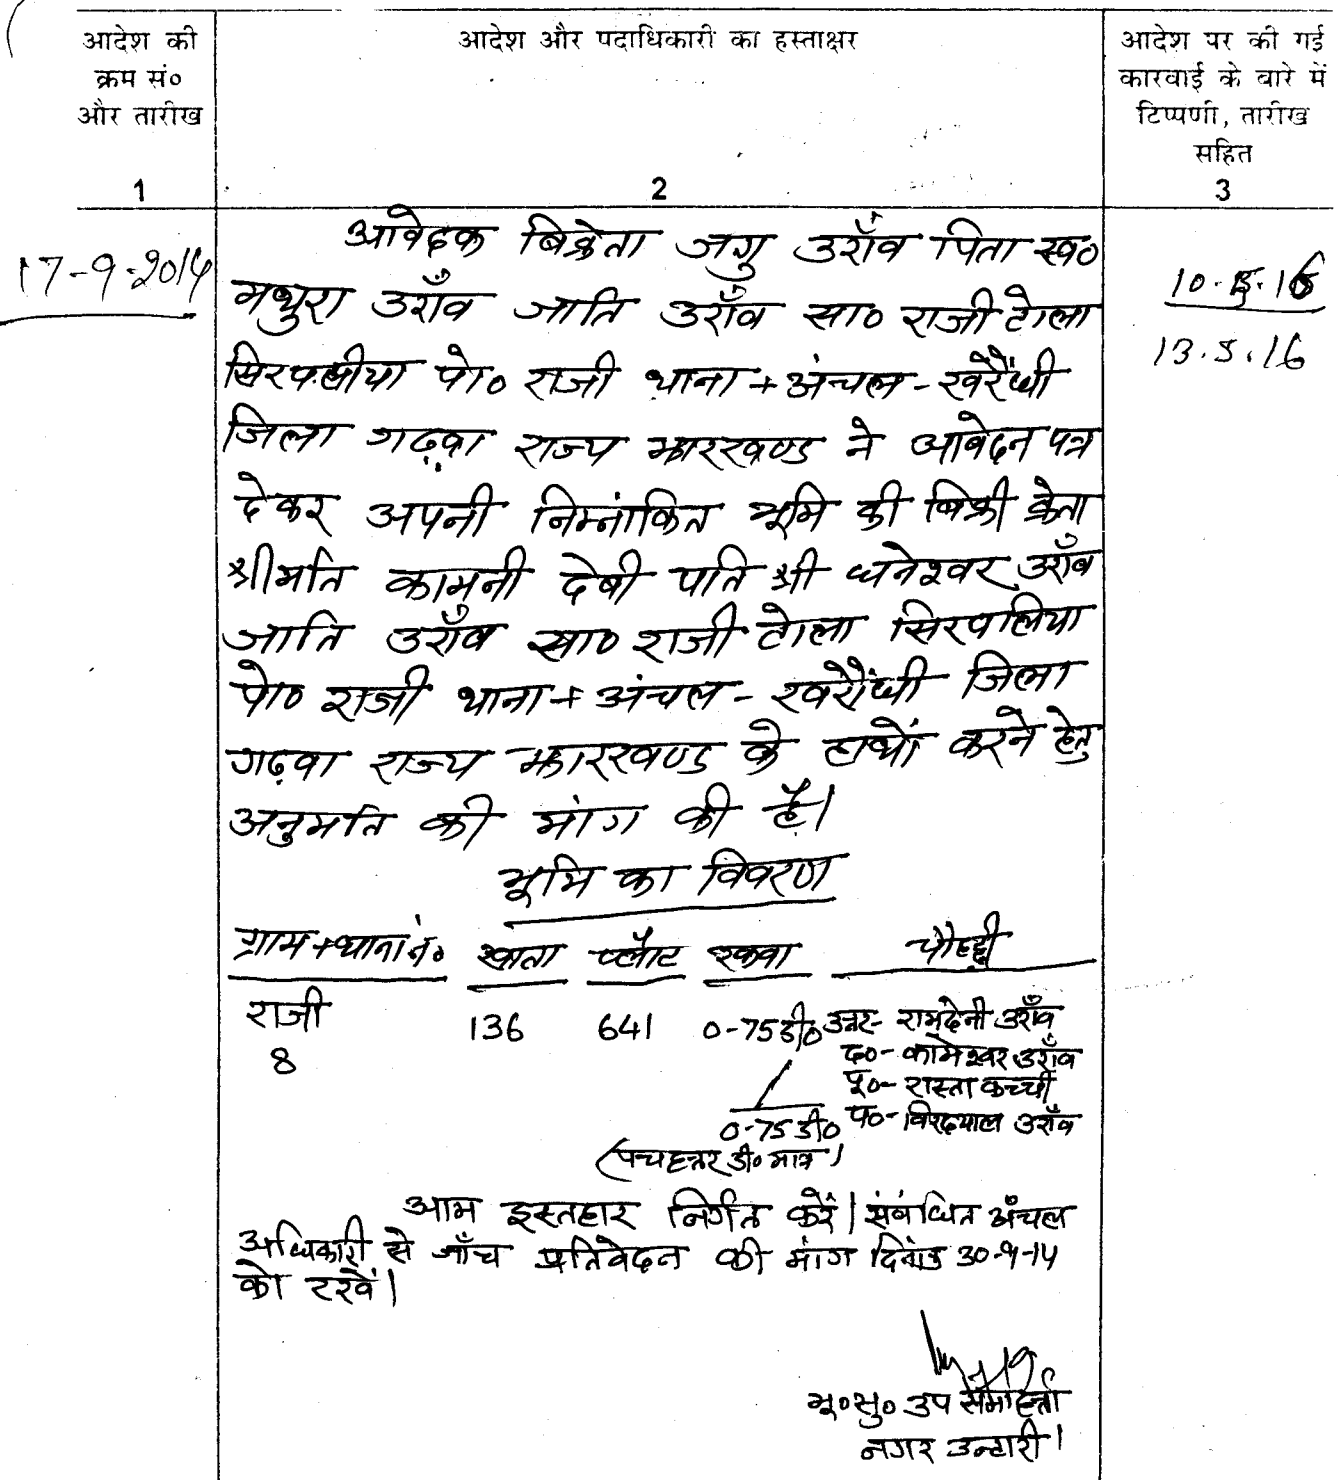 आदेश की
क्रम सं०
और तारीख
1
आदेश और पदाधिकारी का हस्ताक्षर
2
आदेश पर की गई
कारवाई के बारे में
टिप्पणी, तारीख
सहित
3
17-9-2014
आवेदक बिक्रेता जगु उराँव पिता स्व०
मथुरा उराँव जाति उराँव सा० राजी टोला
सिरपलीया पो० राजी थाना + अंचल - खरौंधी
जिला गढ़वा राज्य झारखण्ड ने आवेदन पत्र
देकर अपनी निम्नांकित भूमि की बिक्री क्रेता
श्रीमति कामुनी देबी पति श्री धनेश्वर उराँव
जाति उराँव सा० राजी टोला सिरपलिया
पो० राजी थाना + अंचल - खरौंधी जिला
गढ़वा राज्य झारखण्ड के हाथों करने हेतु
अनुमति की मांग की है।
भूमि का विवरण
ग्राम + थाना नं० खाता प्लॉट रकवा चौहद्दी
राजी 136 641 0-75डी० उत्तर- रामदेनी उराँव
8 द०- कामेश्वर उराँव
पू०- रास्ता कच्ची
0-75डी० प०- विरदयाल उराँव
(पचहत्तर डी० मात्र)
आम इस्तहार निर्गत करें। संबंधित अंचल
अधिकारी से जाँच प्रतिवेदन की मांग दिनांक 30-9-14
को रखें।
भू० सु० उप समाहर्त्ता
नगर उन्टारी।
13.5.16